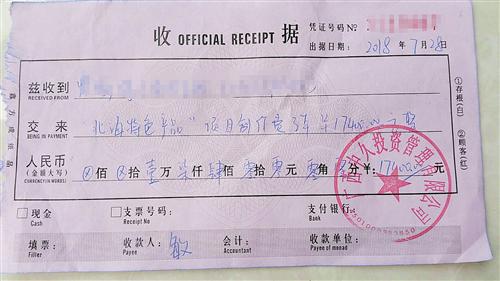 收 OFFICIAL RECEIPT 据
凭证号码 No
出据日期: 2018 年 7 月 28 日
兹收到
RECEIVED FROM
交来
BEING IN PAYMENT
"北海特色产品"项目
17400.00
人民币
(金额大写)
(CURRENCY IN WORDS)
⊗佰⊗拾壹万柒仟肆佰零拾零元零角零分 ¥: 17400.00
①存根(白)
②顾客(红)
投资管理有限公司
□现金
Cash
□支票号码:
Receipt No
支付银行:
Bank
填票:
Filler
收款人: 敏
Payee
会计:
Accountant
收款单位:
Payee of